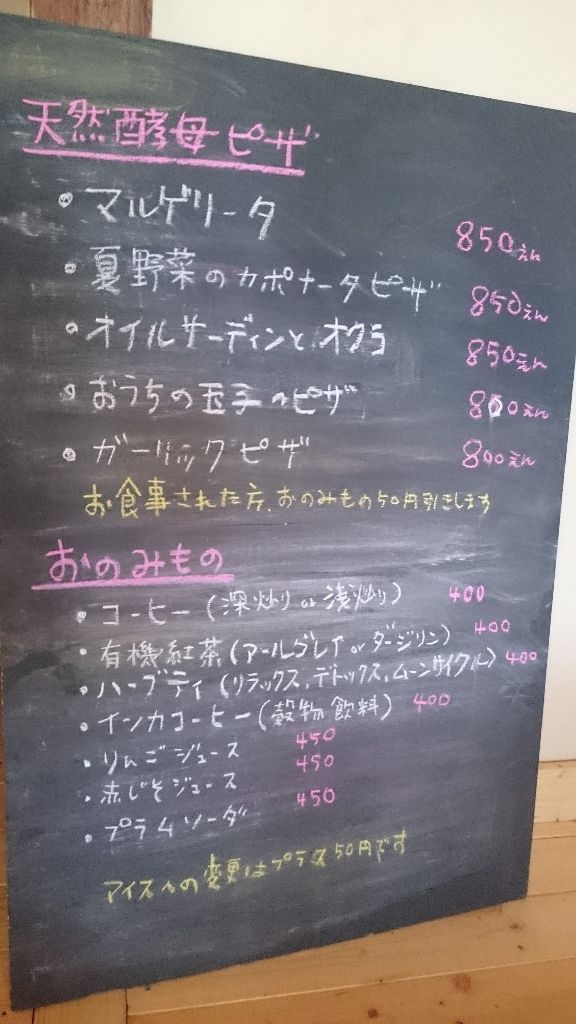 天然酵母ピザ
・マルゲリータ 850えん
・夏野菜のカポナータピザ 850えん
・オイルサーディンとオクラ 850えん
・おうちの玉子のピザ 800えん
・ガーリックピザ 800えん
お食事された方、おのみもの50円引きします
おのみもの
・コーヒー(深炒り or 浅炒り) 400
・有機紅茶(アールグレイ or ダージリン) 400
・ハーブティ(リラックス、デトックス、ムーンサイクル) 400
・インカコーヒー(穀物飲料) 400
・りんごジュース 450
・赤じそジュース 450
・プラムソーダ 450
アイスへの変更はプラス50円です